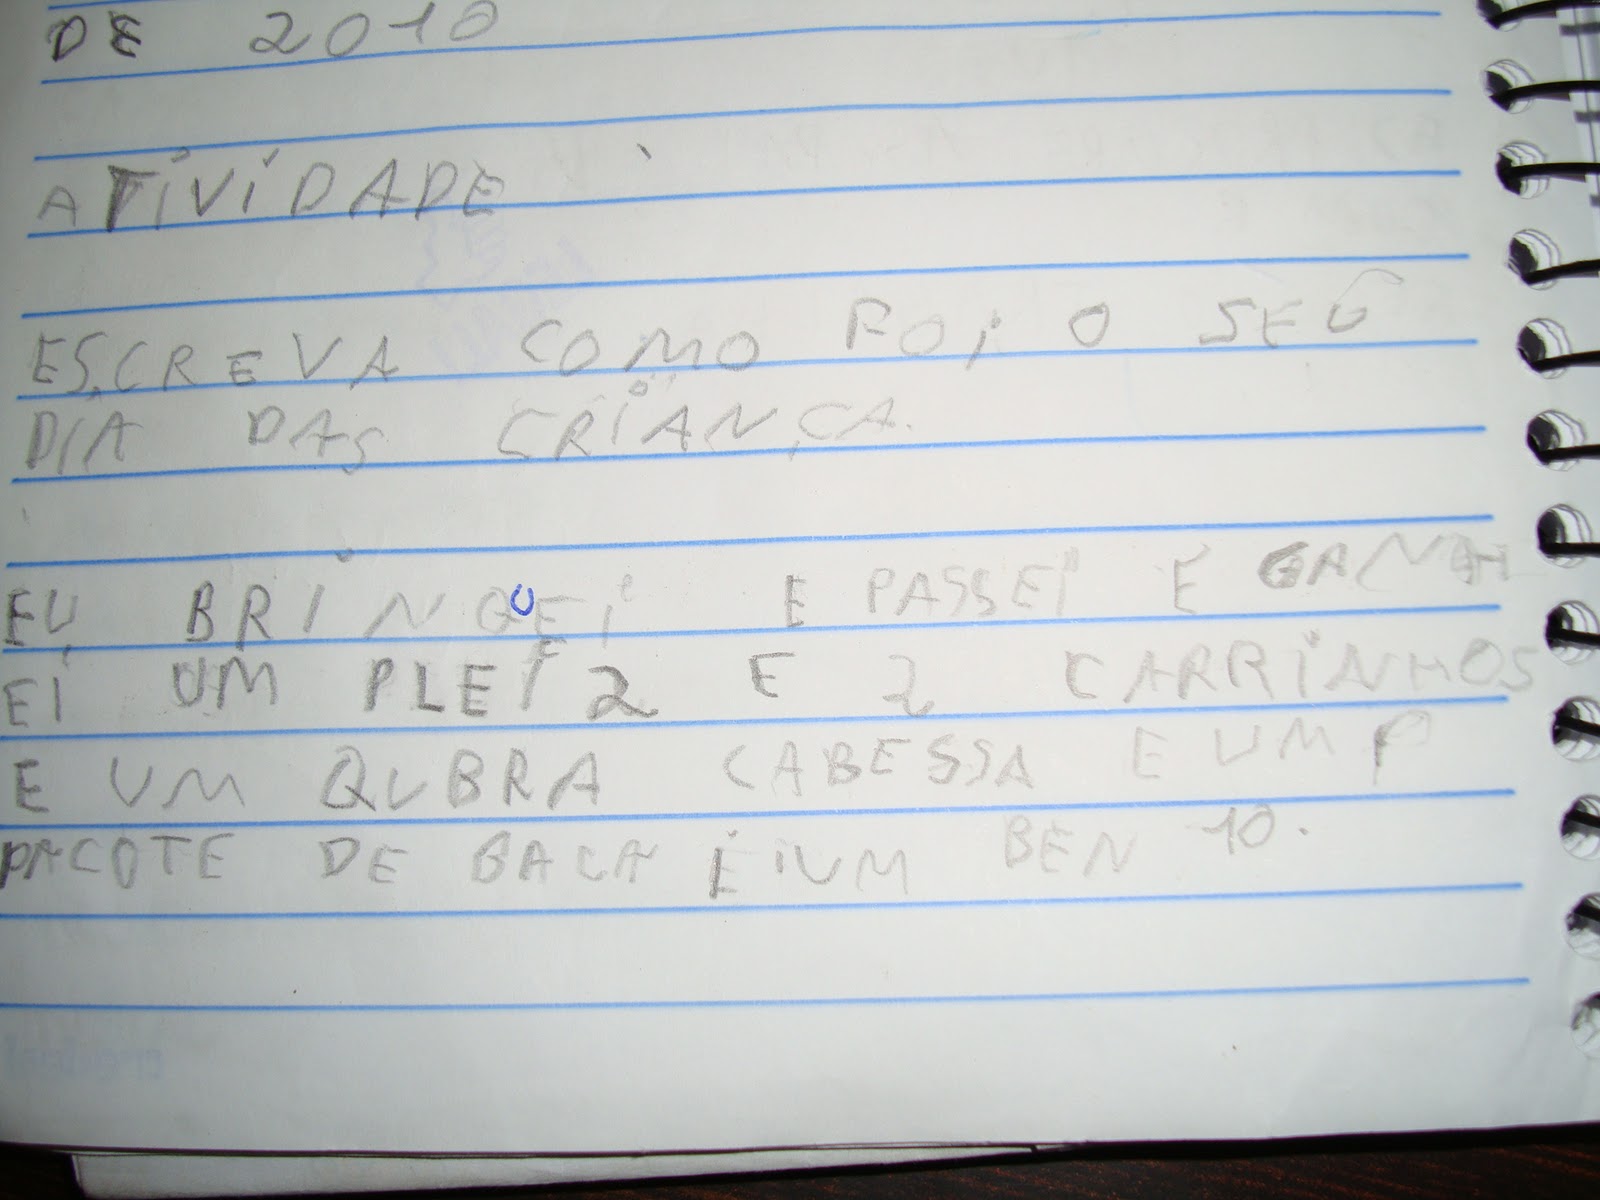 DE 2010
ATIVIDADE
ESCREVA COMO FOI O SEU
DIA DAS CRIANÇA.
EU BRINQUEI E PASSEI E GANH
EI UM PLEI 2 E 2 CARRINHOS
E UM QUBRA CABESSA E UM P
PACOTE DE BALA E IUM BEN 10.